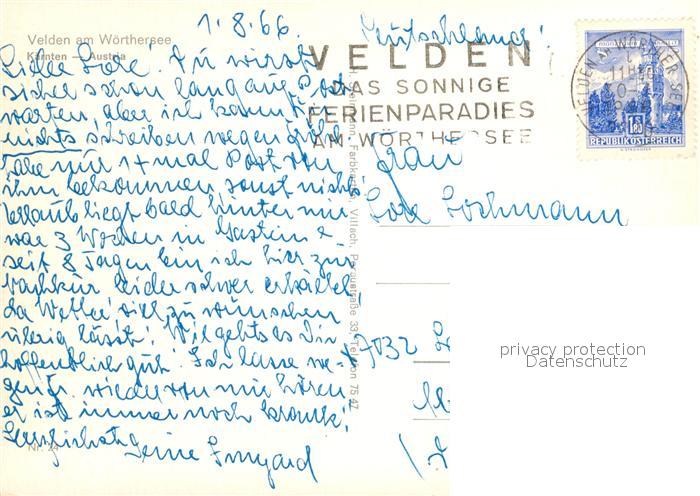 1.8.66
Velden am Wörthersee
Kärnten — Austria
Liebe Lore! Du wirst
sicher schon lang auf Post
warten, aber ich kann Dir
nichts schreiben wegen
habe nur 1 mal Post von
ihm bekommen sonst nichts
Urlaub liegt bald hinter mir
war 3 Wochen in Gastein
seit 8 Tagen bin ich hier zur
leider schwer erkältet
da Wetter viel zu wünschen
übrig lässt! Wie geht es Dir
hoffentlich gut. Ich lasse we-
gen wieder von mir hören
er ist immer noch krank!
Herzlichst Deine Irmgard
Nr. 24
Farbkarten, Villach, Peraustraße 33, Telefon 75 47
Deutschland!
VELDEN
DAS SONNIGE
FERIENPARADIES
AM WÖRTHERSEE
VELDEN AM WÖRTHER SEE
1.80
REPUBLIK ÖSTERREICH
Frau
Lore Lochmann
7032
privacy protection
Datenschutz